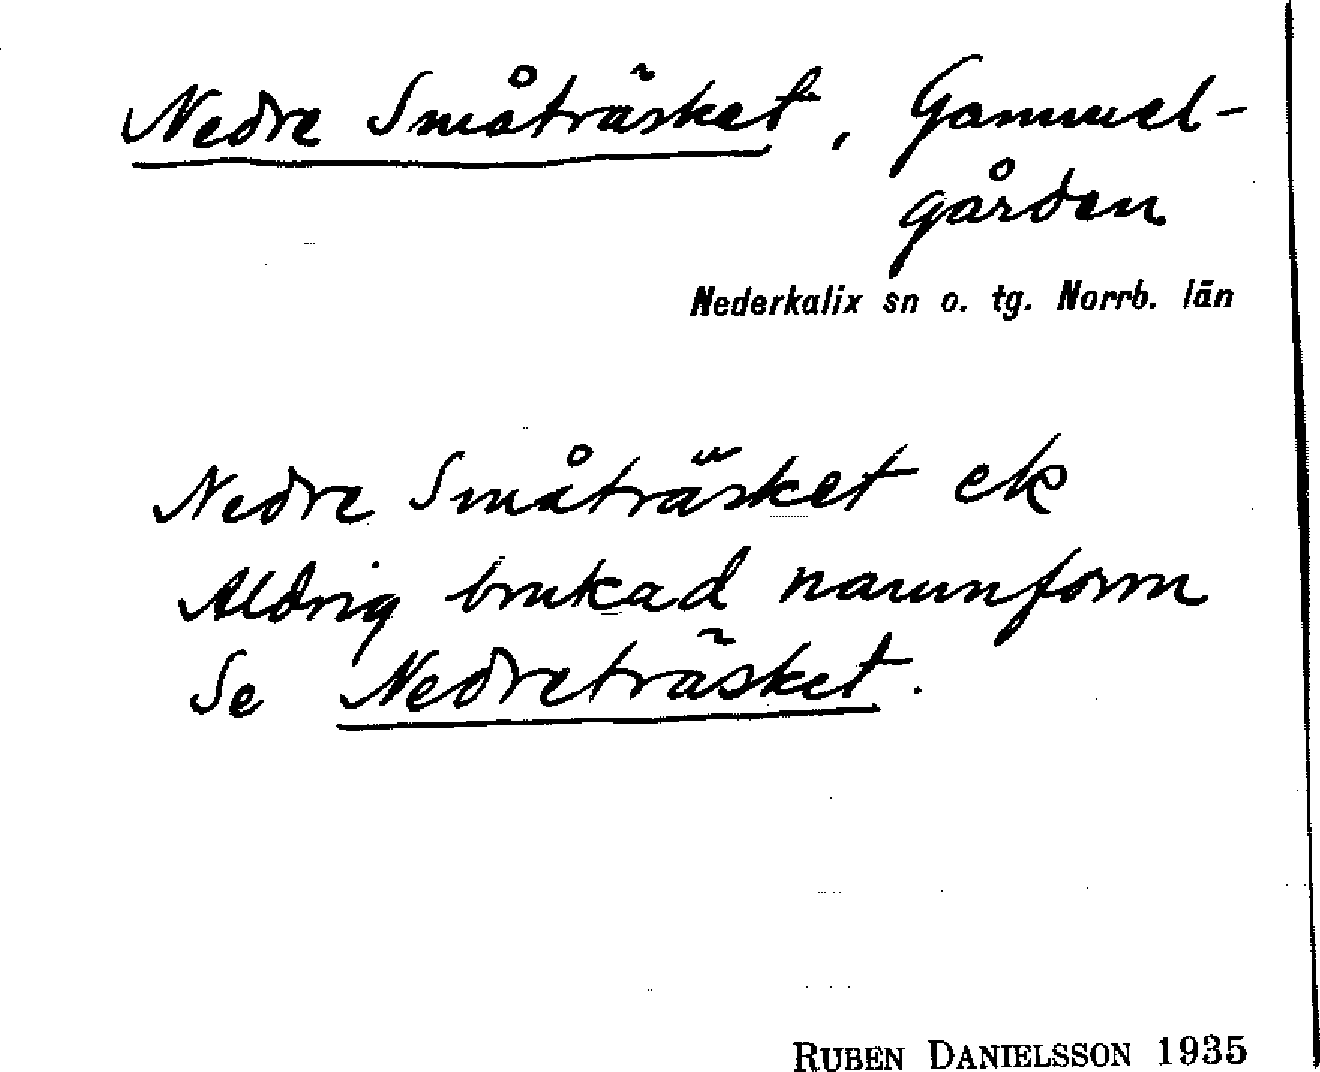 Nedre Småträsket, Gammel-
gården
Nederkalix sn o. tg. Norrb. län
Nedre Småträsket ek
Aldrig brukad namnform
Se Nedreträsket.
RUBEN DANIELSSON 1935